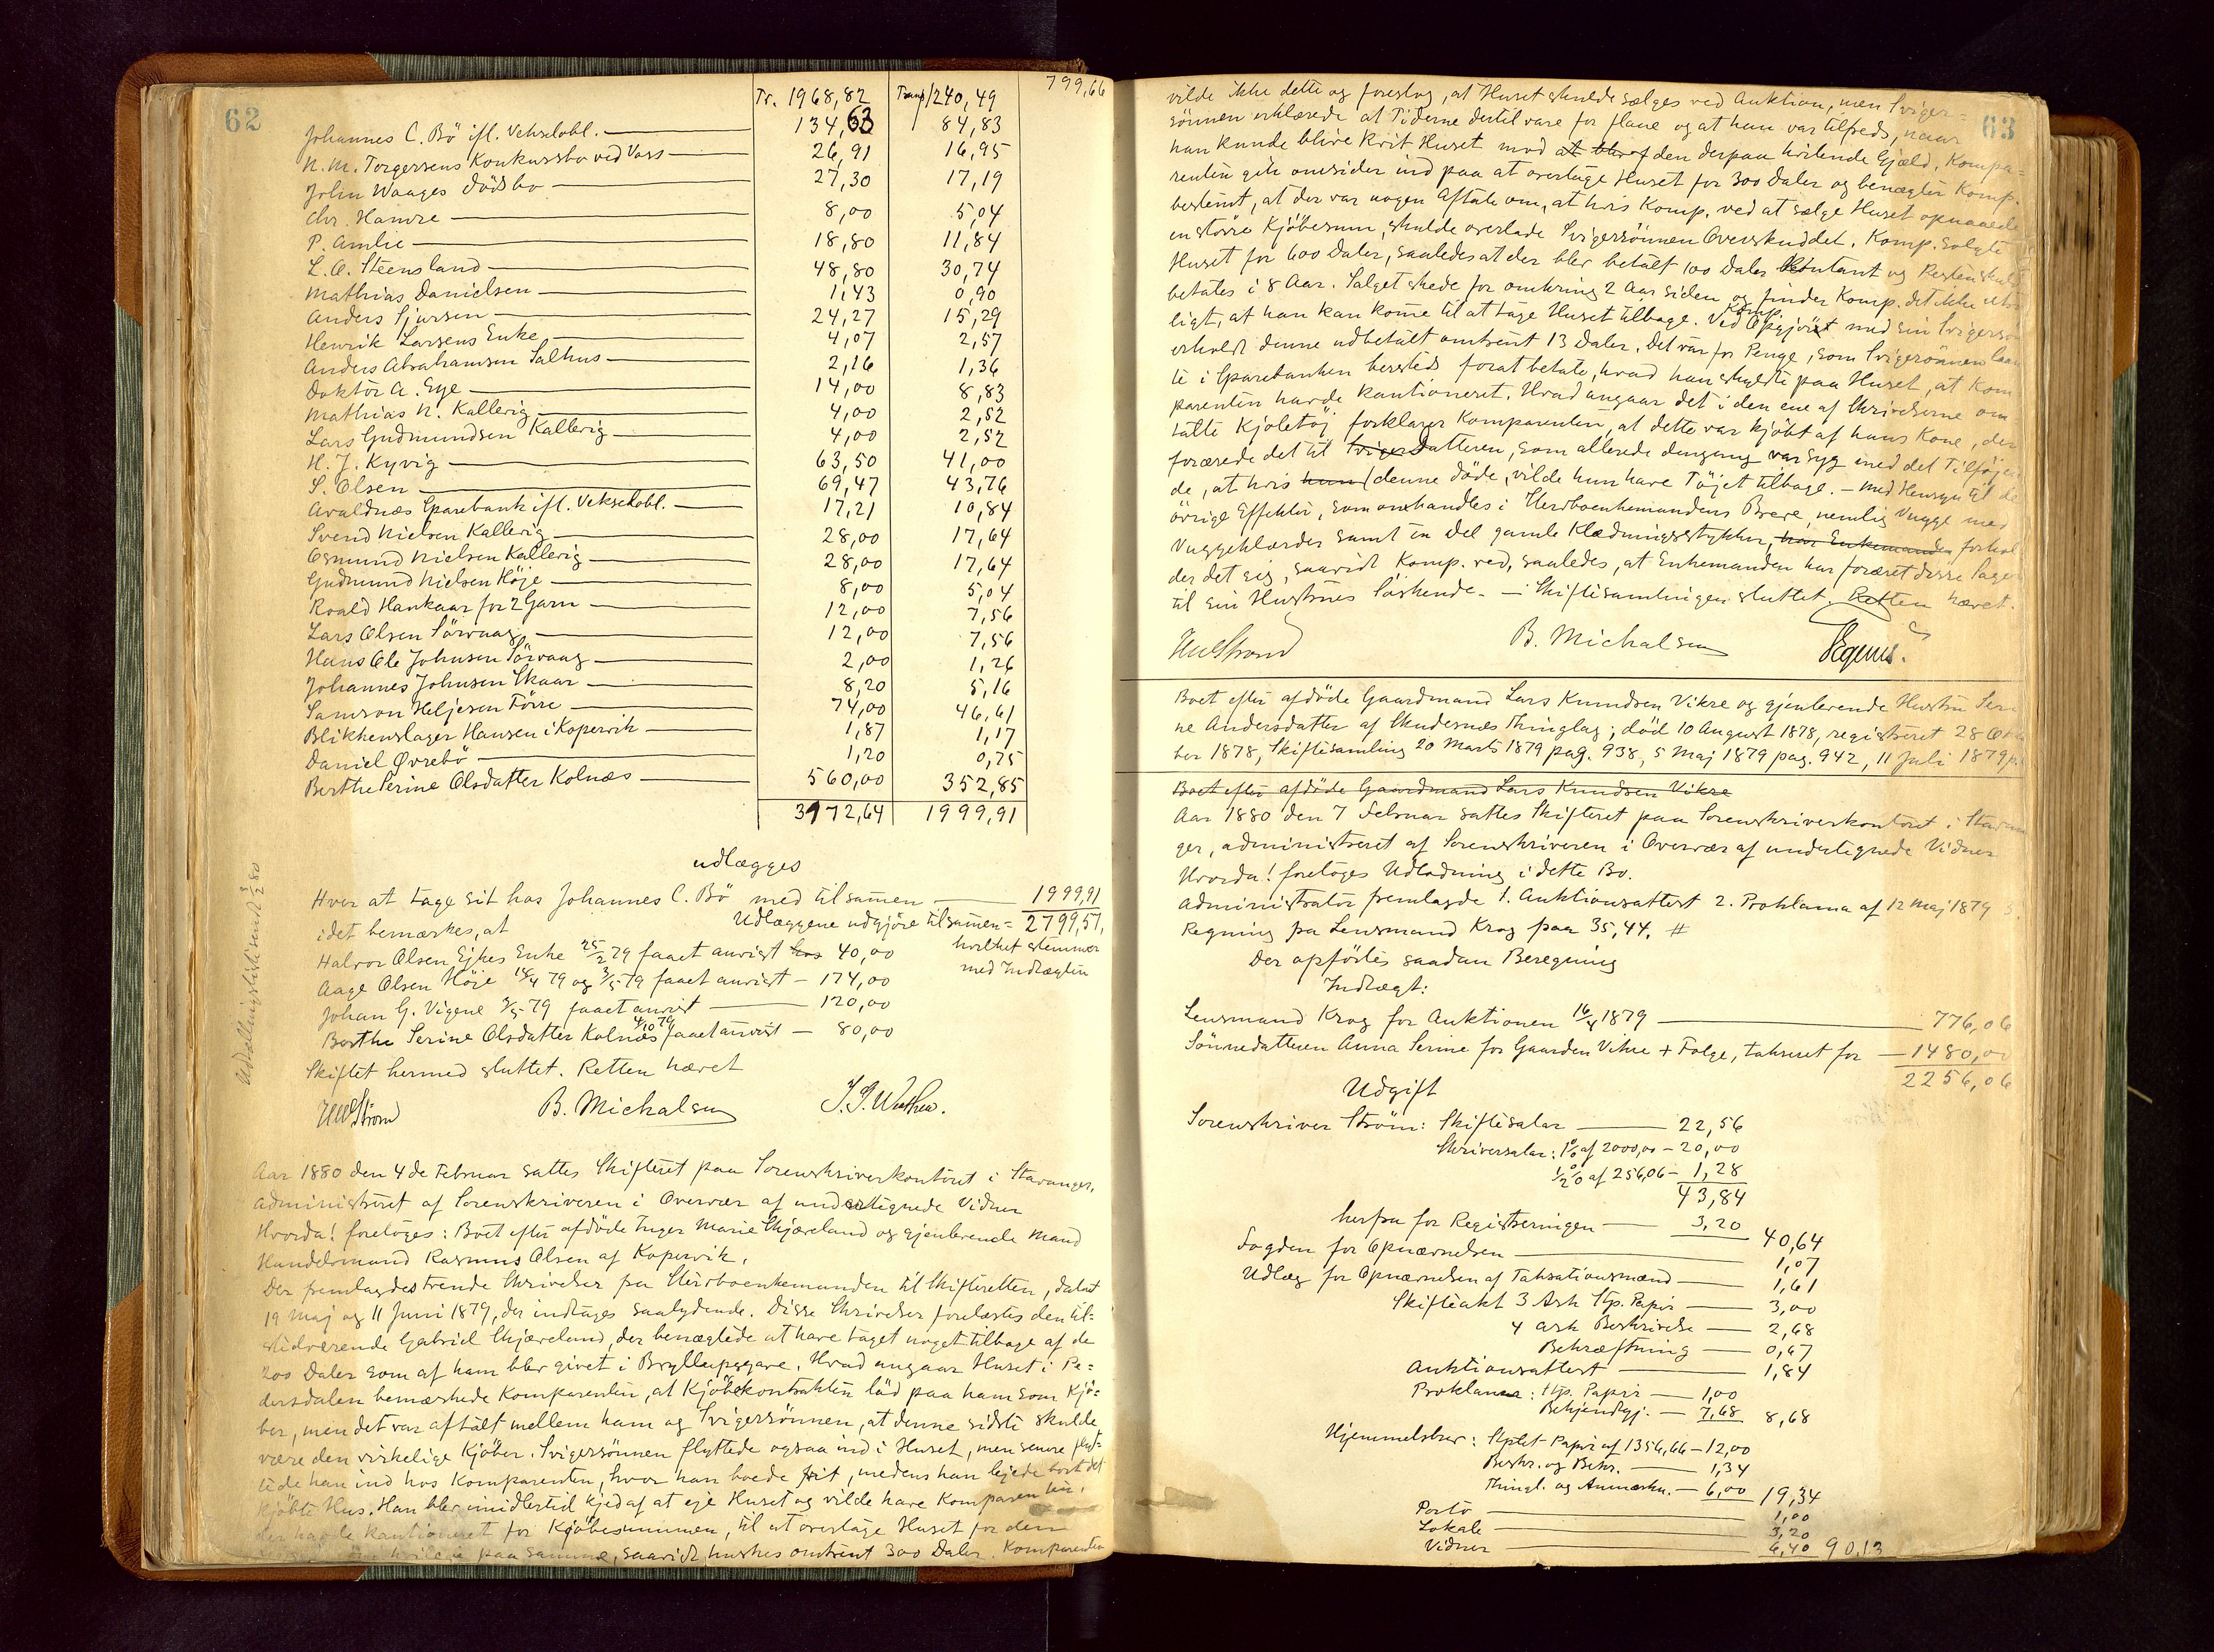 62
Tr. 1968,82 Transp 1240,49 799,66
Johannes C. Bö ifl. Vekselobl. — 134,63 84,83
N. M. Torgersens Konkursbo ved Vass — 26,91 16,95
John Waages Dödsbo — 27,30 17,19
Chr. Hamre — 8,00 5,04
P. Amlie — 18,80 11,84
L. O. Steensland — 48,80 30,74
Mathias Danielsen — 1,43 0,90
Anders Sjursen — 24,27 15,29
Henrik Larsens Enke — 4,07 2,57
Anders Abrahamsen Salhus — 2,16 1,36
Doktor A. Eye — 14,00 8,83
Mathias N. Kallevig — 4,00 2,52
Lars Gudmundsen Kallevig — 4,00 2,52
H. J. Kyvig — 63,50 41,00
S. Olsen — 69,47 43,76
Avaldnæs Sparebank ifl. Vekselobl. — 17,21 10,84
Svend Nielsen Kallevig — 28,00 17,64
Osmund Nielsen Kallevig — 28,00 17,64
Gudmund Nielsen Höje — 8,00 5,04
Roald Hankaar for 2 Garn — 12,00 7,56
Lars Olsen Sörvaag — 12,00 7,56
Hans Ole Johnsen Sörvaag — 2,00 1,26
Johannes Johnsen Skaar — 8,20 5,16
Samson HeljesenFörre — 74,00 46,61
Blikkenslager Hansen i Kopervik — 1,87 1,17
Daniel Øvrebö — 1,20 0,75
Berthe Serine Olsdatter Kolnæs — 560,00 352,85
3172,64 1999,91
udlægges
Hver at tage sit hos Johannes C. Bö med tilsamen — 1999,91
Udlæggene udgjöre tilsamen = 2799,57,
idet bemærkes, at hvilket stemmer
Halvor Olsen Ejkes Enke 25/2 79 faaet anvist hos 40,00 med Indtægten
Aage Olsen Höje 14/4 79 og 3/5 79 faaet anvist — 174,00
Johan G. Vigene 3/5 79 faaet anvist — 120,00
Berthe Serine Olsdatter Kolnæs 4/10 79 faaet anvist — 80,00
Skiftet hermed sluttet. Retten hævet
HWStröm B. Michalsen
Udlodningslisten 3/2 80
Aar 1880 den 4de Februar sattes Skifteret paa Sorenskriverkontoret i Stavanger,
administreret af Sorenskriveren i Overvær af undertegnede Vidner
Hvorda! foretoges: Boet efter afdöde Inger Marie Skjæveland og gjenlevende Mand
Handelsmand Rasmus Olsen af Kopervik.
Der fremlagdes trende Skrivelser fra Stervboenkemanden til Skifteretten, datert
19 Maj og 11 Juni 1879, der indtages saalydende. Disse Skrivelser forelæstes den til=
stedeværende Gabriel Skjæveland, der benægtede at have taget noget tilbage af de
200 Daler som af ham blev givet i Bryllupsgave. Hvad angaar Huset i Pe=
dersdalen bemærkede Komparenten, at Kjöbekontrakten löd paa ham som Kjö=
ber, men det var aftalt mellem ham og Svigersönnen, at denne sidste skulde
være den virkelige Kjöber. Svigersönnen flyttede ogsaa ind i Huset, men senere flyt=
tede han ind hos Komparenten, hvor han boede frit, medens han lejede bort det
kjöbte Hus. Han blev imidlertid kjed af at eje Huset og vilde have Komparenten,
der havde kautioneret for Kjöbesummen, til at overtage Huset for den
paa samme, saavidt huskes omtrent 300 Daler. Komparenten
63
vilde ikke dette og foreslog, at Huset skulde sælges ved Auktion, men Sviger=
sönnen erklærede at Tiderne dertil vare for flaue og at han var tilfreds, naar
han kunde blive kvit Huset mod at blev den derpaa hvilende Gjæld. Kompa=
renten gik omsider ind paa at overtage Huset for 300 Daler og benægter Komp.
bestemt, at der var nogen Aftale om, at hvis Komp. ved at sælge Huset opnaaede
en större Kjöbesum, skulde overlade Svigersönnen Overskuddet. Komp. solgte
Huset for 600 Daler, saaledes at der blev betalt 100 Daler kontant og Resten skulde
betales i 8 Aar. Salget skede for omkring 2 Aar siden og finder Komp. det ikke
ligt, at han kan kome til at tage Huset tilbage. Ved Komp. Opgjöret med sin Svigersön
erholdt denne udbetalt omtrent 13 Daler. Det var for Penge, som Svigersönnen laan
te i Sparebanken hersteds for at betale, hvad han skyldte paa Huset, at Kom
parenten havde kautioneret. Hvad angaar det i den ene af Skrivelserne om
talte Kjoletöj forklarer Komparenten, at dette var kjöbt af hans Kone, der
forærede det til Svigerdatteren, som allerede dengang var syg med det Tilföjen
de, at hvis hun denne döde, vilde hun have Töjet tilbage. — Med Hensyn til de
övrige Effekter, som omhandles i Stervboenkemandens Breve, nemlig Vugge med
Vuggeklæder samt en Del gamle Klædningsstykker, har Enkemanden forhol
der det sig, saavidt Komp. ved, saaledes, at Enkemanden har foræret disse Sager
til sin Hustrues Söskende. — Skiftesamlingen sluttet. Retten hævet.
HWStröm B. Michalsen
Boet efter afdöde Gaardmand Lars Knudsen Vikre og gjenlevende Hustru Seri
ne Andersdatter af Skudesnæs Thinglag; död 10 August 1878, registreret 28 Okto
ber 1878, Skiftesamling 20 Marts 1879 pag. 938, 5 Maj 1879 pag. 942, 11 Juli 1879 p.
Boet efter afdöde Gaardmand Lars Knudsen Vikre
Aar 1880 den 7 Februar sattes Skifteret paa Sorenskriverkontoret i Stavan
ger, administreret af Sorenskriveren i Overvær af undertignede Vidner
Hvorda! foretoges Udlodning i dette Bo.
Administrator fremlagde 1. Auktionsattest 2. Proklama af 12 Maj 1879 3.
Regning fra Lensmand Krog paa 35,44. #
Der opförtes saadan Beregning
Indtægt:
Lensmand Krog for Auktionen 16/4 1879 — 776,06
Sönnedatteren Anna Serine for Gaarden Vikre + Følge, takseret for — 1480,00
2256,06
Udgift
Sorenskriver Ström: Skiftesalær — 22,56
Skriversalær: 1% af 2000,00 — 20,00
1/2% af 256,06 — 1,28
43,84
herfra for Registreringen — 3,20 40,64
Fogden for Opnævnelsen — 1,07
Udlæg for Opnævnelsen af Taksationsmænd — 1,61
Skifteakt 3 Ark Stp. Papir — 3,00
4 Ark Beskrivelse — 2,68
Bekræftning — 0,67
Auktionsattest — 1,84
Proklama: Stp. Papir — 1,00
Bekjendtgj. — 7,68 8,68
Hjemmelsbrev: Stplet Papir af 1356,66 — 12,00
Beskr. og Bekr. — 1,34
Thingl. og Anmærkn. — 6,00 19,34
Porto — 1,00
Lokale — 3,20
Vidner — 6,40 90,13